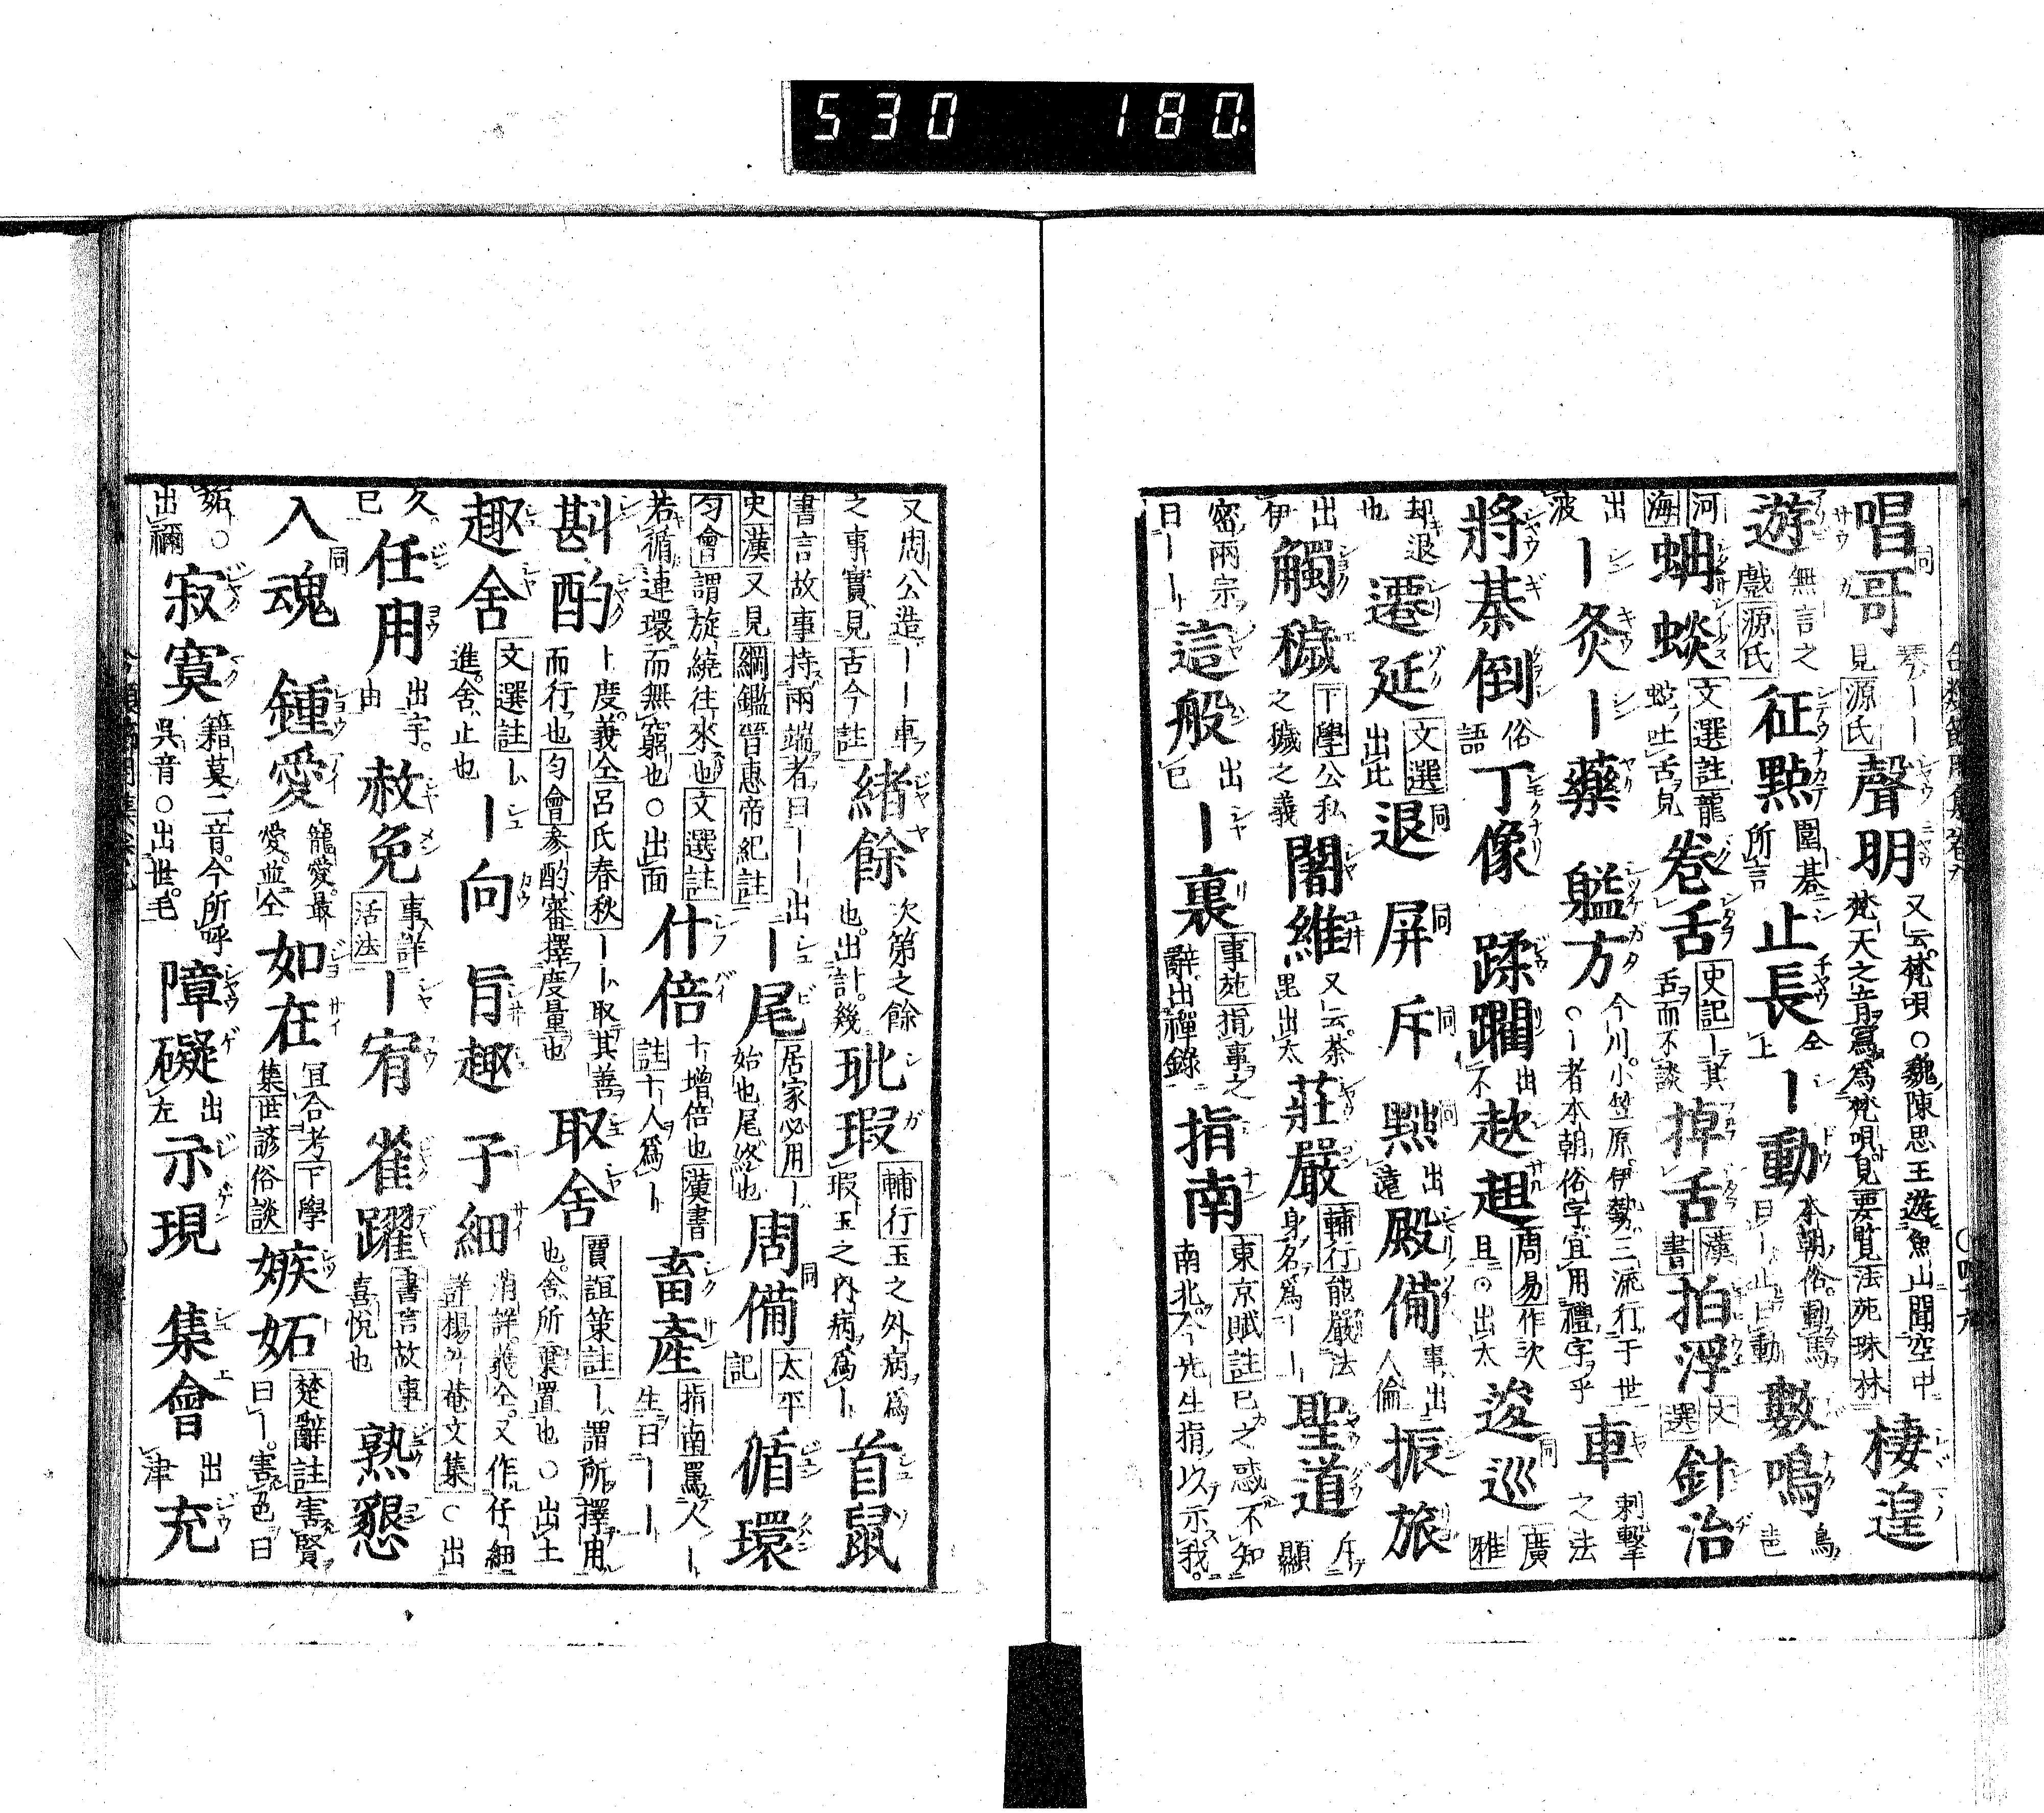 530 180
唱哥 琴｜｜見源氏 聲明 又云梵唄○魏陳思王遊魚山聞空中梵天之音寫爲梵唄見要覧法苑珠林 棲遑
遊 無言之戲源氏 征㸃 圍碁所言 止長 仝上 ｜動 本朝俗動馬曰｜止曰動 數鳴 鳥
河海 蚺蜦 文選註龍蛇吐舌見 卷舌 史記｜其舌而不談 掉舌 漢書 拍浮 文選 針治
出波 ｜灸 ｜藥 艦方 今川小笠原伊勢三流行于世○｜者本朝俗字宜用禮字乎 車 刺撃之法
將棊倒 俗語 丁像 蹂躙 出不 趑趄 周易作次且○出太 逡巡 同 廣雅
却退也 遷延 文選出此 退 同 屏 同 斥 同 黜 同 出遠 殿備 事出人倫 振旅
出伊 觸穢 下學公私之穢之義 闍維 又云荼毘出太 莊嚴 輔行能嚴法身名爲｜｜ 聖道 斥顯
密兩宗曰｜｜ 這般 出已 ｜裏 事苑指事之辭出禪錄 指南 東京賦註已之惑不知南北先生指以示我
又周公造｜｜車 緒餘 次第之餘也出計幾 玼瑕 輔行玉之外病爲瑕玉之内病爲｜ 首鼠
之事實見古今註
書言故事持兩端者曰｜｜出 ｜尾 居家必用｜始也尾終也 周備 同 太平記 循環
史漢又見綱鑑晉惠帝紀註
匀會謂旋繞往來也文選註 什倍 十增倍也漢書註十人爲｜ 畜產 指南罵人｜生曰｜｜
若循連環而無窮也○出面
斟酌 ｜度義仝呂氏春秋｜｜取其善而行也匀會參酌審擇度量也 取舍 賈誼策註｜謂所擇用也舍所棄置也○出土
趣舍 文選註｜進舍止也 ｜向 旨趣 子細 消詳義仝又作仔細詳楊升菴文集○出
久已 任用 出字由 赦免 事詳活法 ｜宥 雀躍 書言故事喜悅也 熟懇
入魂 同 鍾愛 寵愛最愛並仝 如在 宜合考下學集世諺俗談 嫉妬 楚辭註害賢曰｜害色曰
妬○出禰 寂寞 籍莫二音今所呼吳音○出世毛 障礙 出左 示現 集會 出津 充